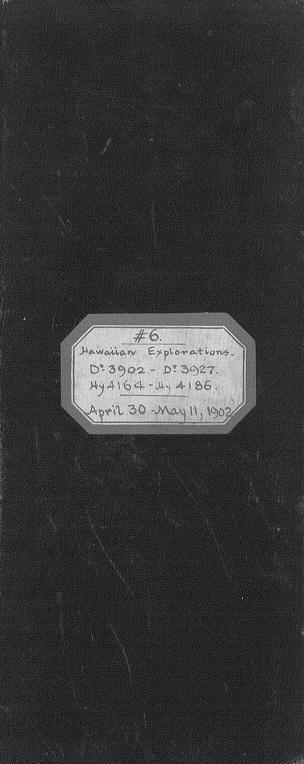 #6.
Hawaiian Explorations.
Dr 3902 - Dr 3927.
Hy 4164 - Hy 4186.
April 30 - May 11, 1902.